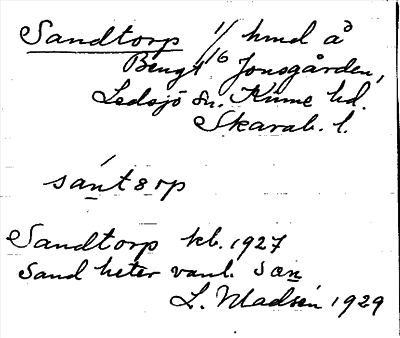 Sandtorp 1/16 hmd å
Bengt Jonsgården,
Ledsjö sn. Kinne hd.
Skarab. l.
sántərp
Sandtorp kb. 1927
Sand heter vanl. san
L. Madsén 1929